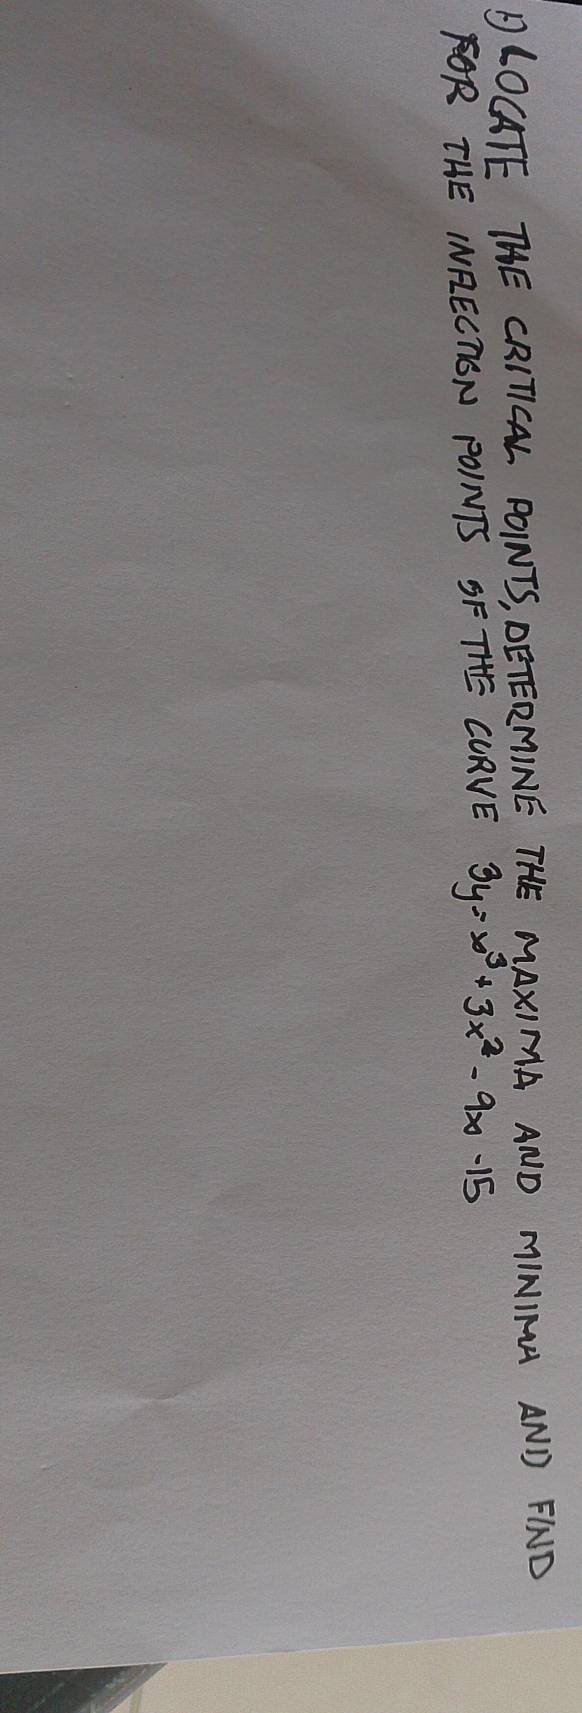 1) LOCATE THE CRITICAL POINTS, DETERMINE THE MAXIMA AND MINIMA AND FIND
FOR THE INFLECTION POINTS OF THE CURVE 3y = x³ + 3x² - 9x - 15